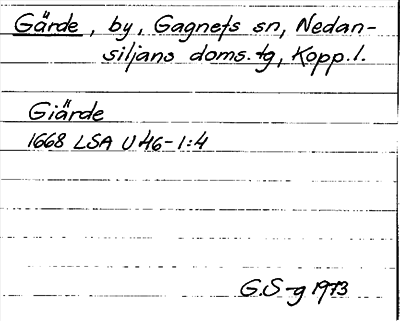 Gärde, by, Gagnefs sn, Nedan-
siljans doms.tg, Kopp.l.
Giärde
1668 LSA U46-1:4
G.S-g 1973